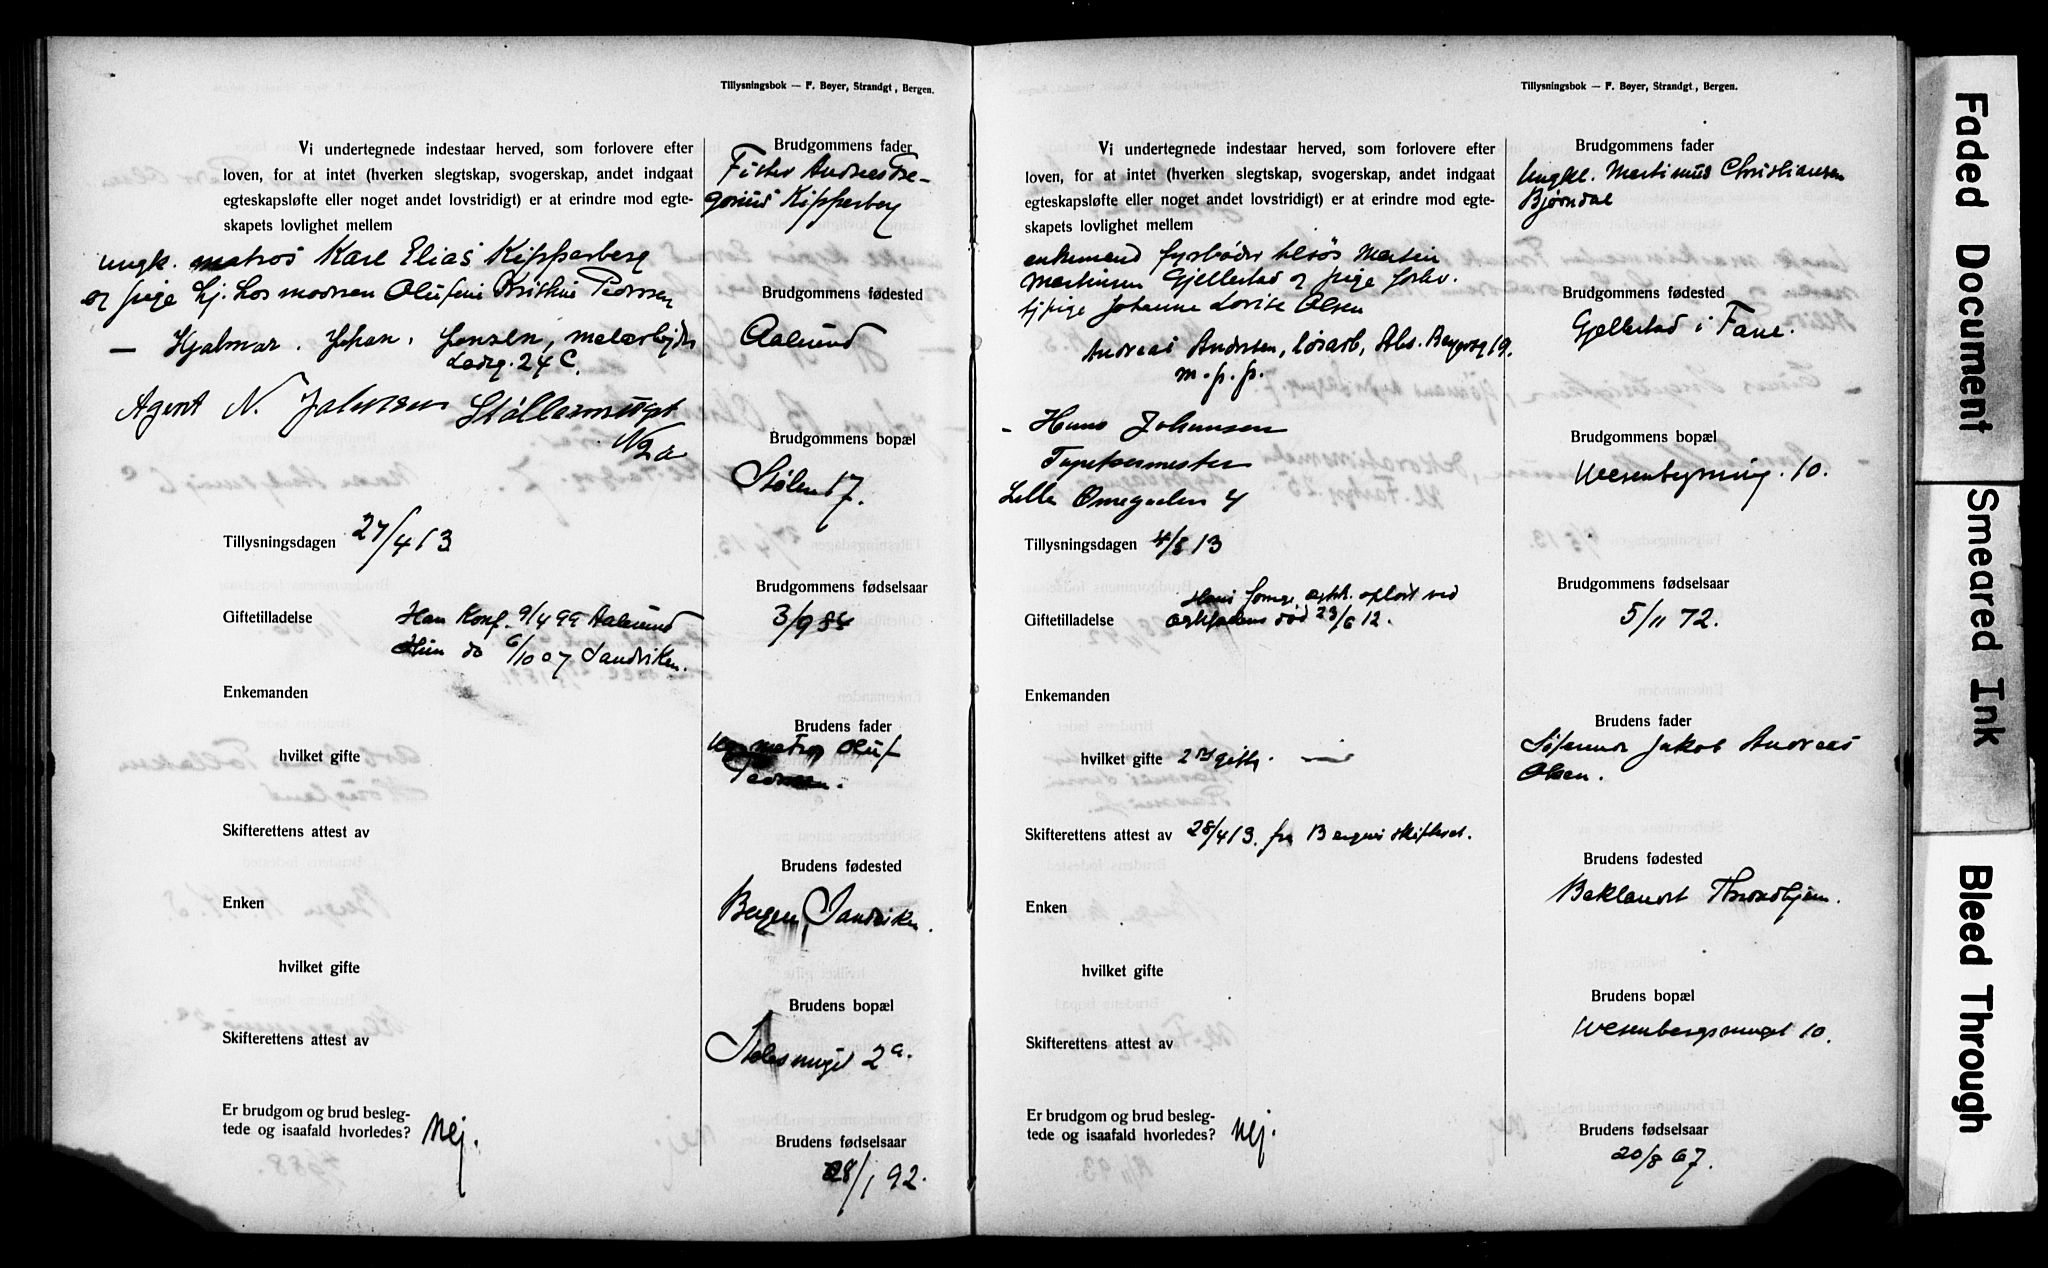 Tillysningsbok — F. Bøyer, Strandgt, Bergen.
Vi undertegnede indestaar herved, som forlovere efter
loven, for at intet (hverken slegtskap, svogerskap, andet indgaat
egteskapsløfte eller noget andet lovstridigt) er at erindre mod egte-
skapets lovlighet mellem
ungk. matros Karl Elias Kipperberg
og pige Olufine Kristine Pedersen
— Hjalmar Johan Jensen, malerarbejder
Ladeg. 24 C.
Agent N. Jakobsen Støllesmuget
N 2a
Tillysningsdagen 27/4 13
Giftetilladelse Han konf. 9/4 99 Aalesund
Hun do 6/10 07 Sandviken.
Enkemanden
hvilket gifte
Skifterettens attest av
Enken
hvilket gifte
Skifterettens attest av
Er brudgom og brud besleg-
tede og isaafald hvorledes? Nej.
Brudgommens fader
Fisker Andreas Gre-
gorius Kipperberg
Brudgommens fødested
Aalesund
Brudgommens bopæl
Stølen 17.
Brudgommens fødselsaar
3/9 84
Brudens fader
matros Oluf
Pedersen.
Brudens fødested
Bergen, Sandviken.
Brudens bopæl
Stølesmuget 2a.
Brudens fødselsaar
28/1 92.
Tillysningsbok — F. Bøyer, Strandgt., Bergen.
Vi undertegnede indestaar herved, som forlovere efter
loven, for at intet (hverken slegtskap, svogerskap, andet indgaat
egteskapsløfte eller noget andet lovstridigt) er at erindre mod egte-
skapets lovlighet mellem
enkemand fyrbøder Martin
Martinsen Gjellestad og pige forhv.
tj.pige Johanne Lovise Olsen
Andreas Andersen, løsarb, 19.
m. p. p.
- Hans Johansen
Tapetsermester
Lille Øvregaden 4
Tillysningsdagen 4/5 13
Giftetilladelse Hans forrige egtsk. opløst ved
død 23/6 12.
Enkemanden
hvilket gifte 2det gifte.
Skifterettens attest av 28/4 13. fra Bergens skifteret.
Enken
hvilket gifte
Skifterettens attest av
Er brudgom og brud besleg-
tede og isaafald hvorledes? Nej.
Brudgommens fader
Ungk. Martinus Christiansen
Bjørndal
Brudgommens fødested
Gjellestad i Fane.
Brudgommens bopæl
Wesenbergsmug. 10.
Brudgommens fødselsaar
5/11 72.
Brudens fader
Jakob Andreas
Olsen.
Brudens fødested
Baklandet Throndhjem.
Brudens bopæl
Wesenbergsmuget 10.
Brudens fødselsaar
20/8 67.
Faded Document
Smeared Ink
Bleed Through